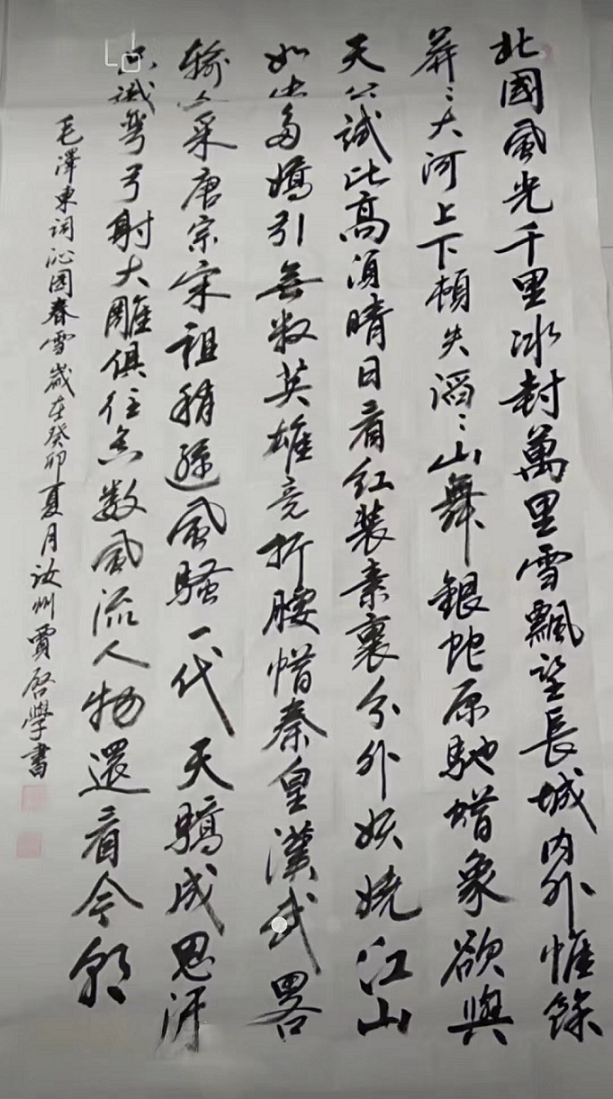 北國風光千里冰封萬里雪飄望長城内外惟餘
莽〻大河上下頓失滔〻山舞銀蛇原馳蜡象欲與
天公試比高須晴日看红装素裹分外妖娆江山
如此多嬌引無数英雄竞折腰惜秦皇漢武畧
输文采唐宗宋祖稍逊風騷一代天驕成思汗
只識彎弓射大雕俱往矣数風流人物還看今朝
毛澤東词沁园春雪歲在癸卯夏月汝州賈啓學書